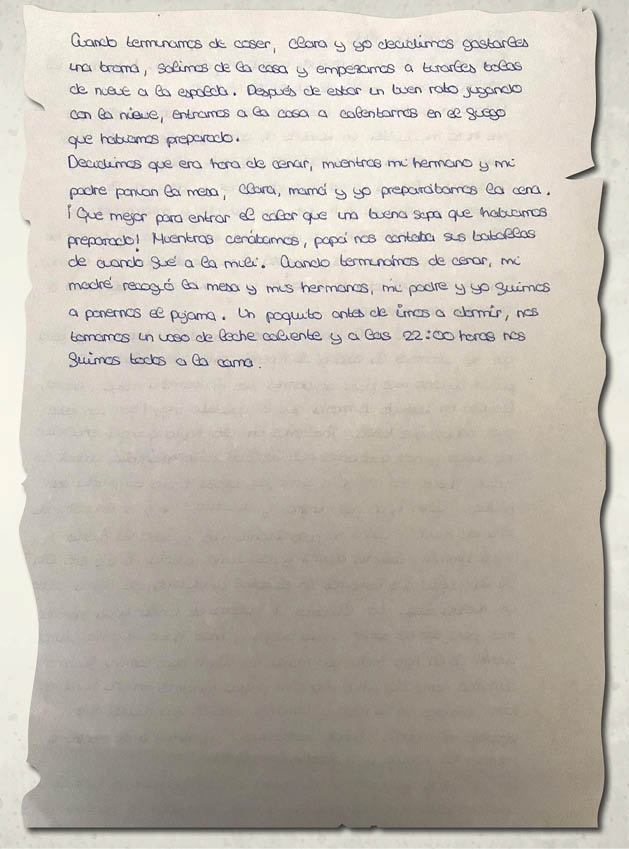 Cuando terminamos de coser, Clara y yo decidimos gastarles
una broma, salimos de la casa y empezamos a tirarles bolas
de nieve a la espalda. Después de estar un buen rato jugando
con la nieve, entramos a la casa a calentarnos en el fuego
que habíamos preparado.
Decidimos que era hora de cenar, mientras mi hermano y mi
padre ponían la mesa, Clara, mamá y yo preparábamos la cena.
¡Que mejor para entrar el calor que una buena sopa que habíamos
preparado! Mientras cenábamos, papá nos contaba sus batallas
de cuando fué a la mili. Cuando terminamos de cenar, mi
madre recogió la mesa y mis hermanos, mi padre y yo fuimos
a ponernos el pijama. Un poquito antes de irnos a dormir, nos
tomamos un vaso de leche caliente y a las 22:00 horas nos
fuimos todos a la cama.